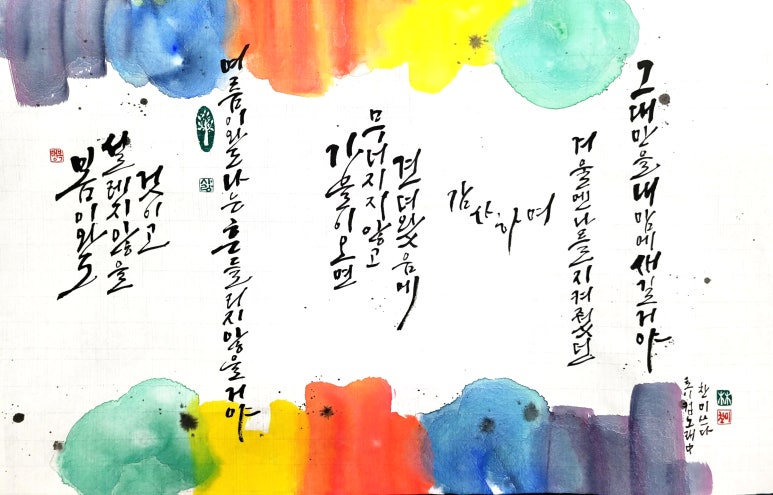 봄이와도
설레지않을
것이고
여름이와도 나는 흔들리지않을거야
가을이오면
무너지지않고
견뎌왔음에
감사하며
겨울엔 나를 지켜줬던
그대만을 내 맘에 새길거야
로이킴노래中
찬미쓰다
林